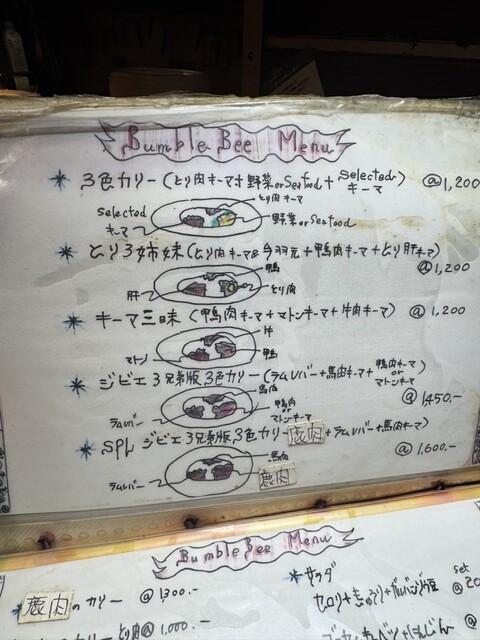 Bumble Bee Menu
* 3色カリー (とり肉キーマ+野菜orSeafood+Selectedキーマ) @1,200
とり肉キーマ
Selectedキーマ
野菜orSeafood
* とり3姉妹 (とり肉キーマ&今羽元+鴨肉キーマ+とり肝キーマ)
@1,200
鴨
肝
とり肉
* キーマ三昧 (鴨肉キーマ+マトンキーマ+牛肉キーマ) @1,200
牛
マトン
鴨
* ジビエ3兄弟版3色カリー (ラムレバー+馬肉キーマ+鴨肉キーマorマトンキーマ)
@1,450.-
馬肉
ラムレバー
鴨肉orマトンキーマ
* SPL ジビエ3兄弟版3色カリー 鹿肉+ラムレバー+馬肉キーマ)
@1,600.-
馬肉
ラムレバー
鹿肉
Bumble Bee Menu
鹿肉のカリー @1,300.-
@1,000.-
*サラダ
セロリ+きゅうり+
set
@20